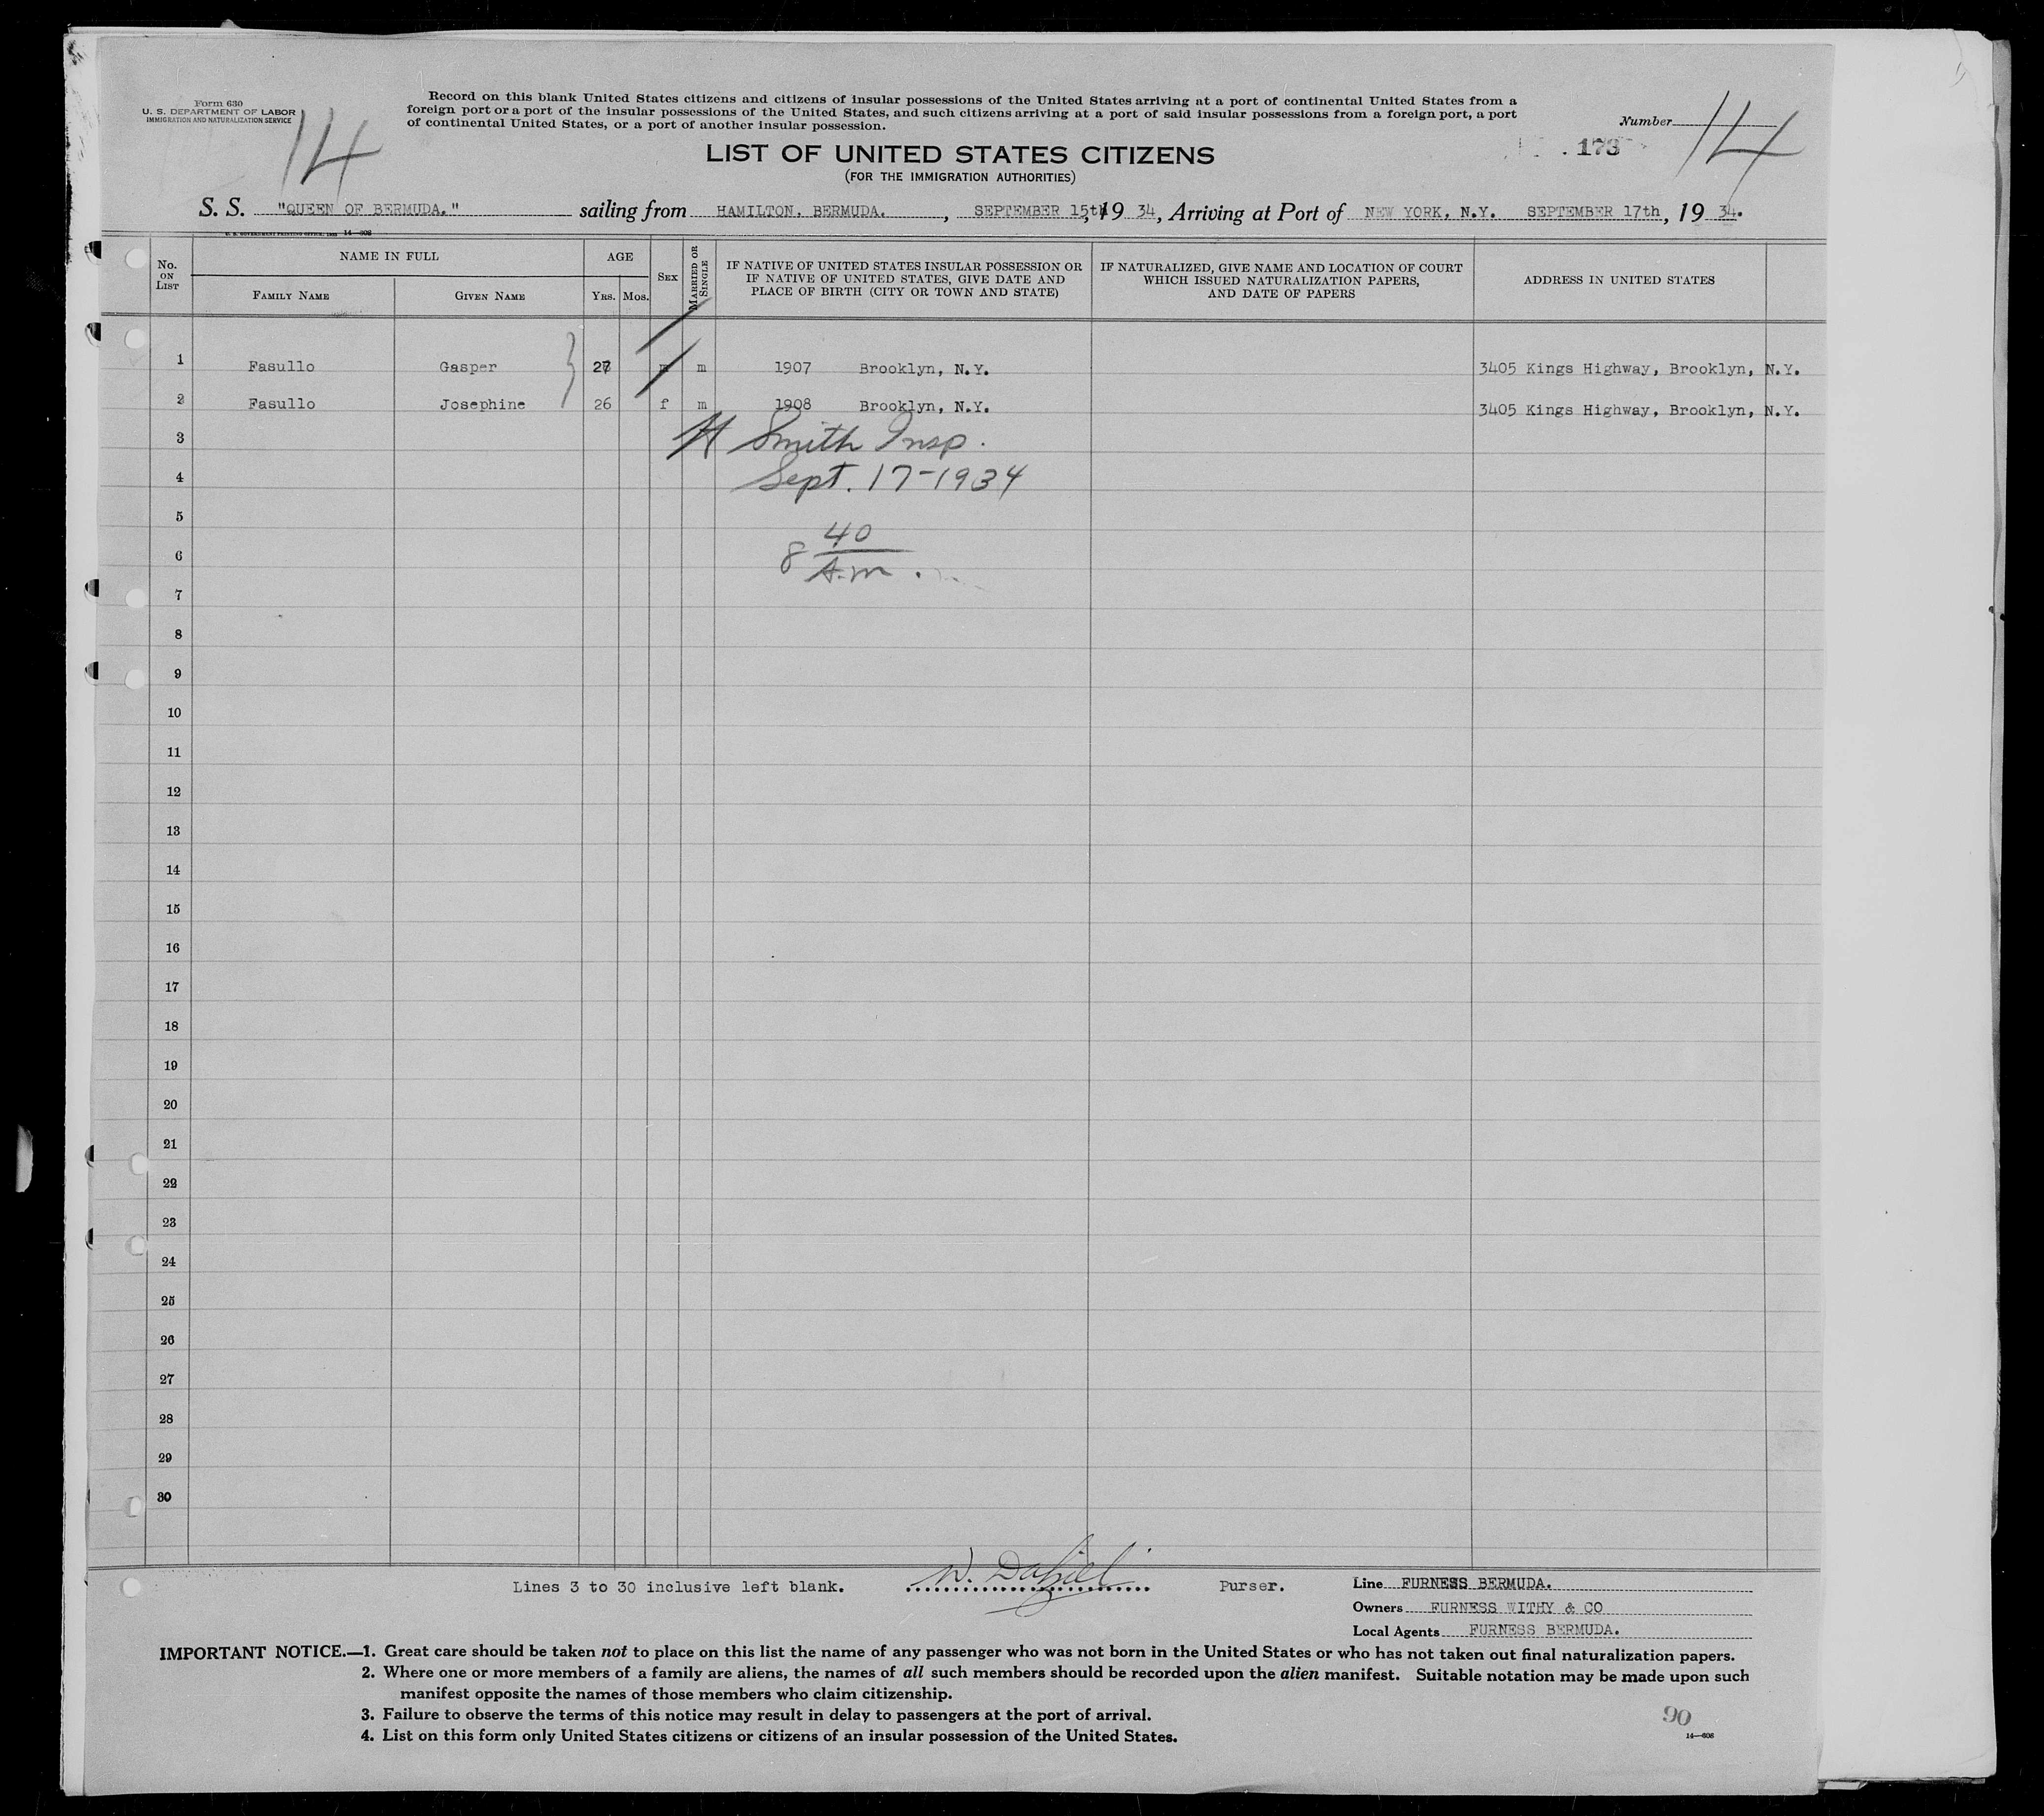 Form 630
U. S. DEPARTMENT OF LABOR
IMMIGRATION AND NATURALIZATION SERVICE
14
Record on this blank United States citizens and citizens of insular possessions of the United States arriving at a port of continental United States from a
foreign port or a port of the insular possessions of the United States, and such citizens arriving at a port of said insular possessions from a foreign port, a port
of continental United States, or a port of another insular possession.
Number 14
173
LIST OF UNITED STATES CITIZENS
(FOR THE IMMIGRATION AUTHORITIES)
S. S. "QUEEN OF BERMUDA." sailing from HAMILTON. BERMUDA. , SEPTEMBER 15th, 19 34, Arriving at Port of NEW YORK, N.Y. SEPTEMBER 17th, 19 34.
14—808
No. ON LIST
NAME IN FULL
FAMILY NAME
GIVEN NAME
AGE
YRS.
MOS.
SEX
MARRIED OR SINGLE
IF NATIVE OF UNITED STATES INSULAR POSSESSION OR
IF NATIVE OF UNITED STATES, GIVE DATE AND
PLACE OF BIRTH (CITY OR TOWN AND STATE)
IF NATURALIZED, GIVE NAME AND LOCATION OF COURT
WHICH ISSUED NATURALIZATION PAPERS,
AND DATE OF PAPERS
ADDRESS IN UNITED STATES
1 Fasullo Gasper 27 m m 1907 Brooklyn, N.Y. 3405 Kings Highway, Brooklyn, N.Y.
2 Fasullo Josephine 26 f m 1908 Brooklyn, N.Y. 3405 Kings Highway, Brooklyn, N.Y.
3 H Smith Insp.
4 Sept. 17-1934
5
6 8 40 A.m.
7
8
9
10
11
12
13
14
15
16
17
18
19
20
21
22
23
24
25
26
27
28
29
30
Lines 3 to 30 inclusive left blank. W. Purser.
Line FURNESS BERMUDA.
Owners FURNESS WITHY & CO
Local Agents FURNESS BERMUDA.
IMPORTANT NOTICE.—1. Great care should be taken not to place on this list the name of any passenger who was not born in the United States or who has not taken out final naturalization papers.
2. Where one or more members of a family are aliens, the names of all such members should be recorded upon the alien manifest. Suitable notation may be made upon such
manifest opposite the names of those members who claim citizenship.
3. Failure to observe the terms of this notice may result in delay to passengers at the port of arrival.
4. List on this form only United States citizens or citizens of an insular possession of the United States.
90
14—808